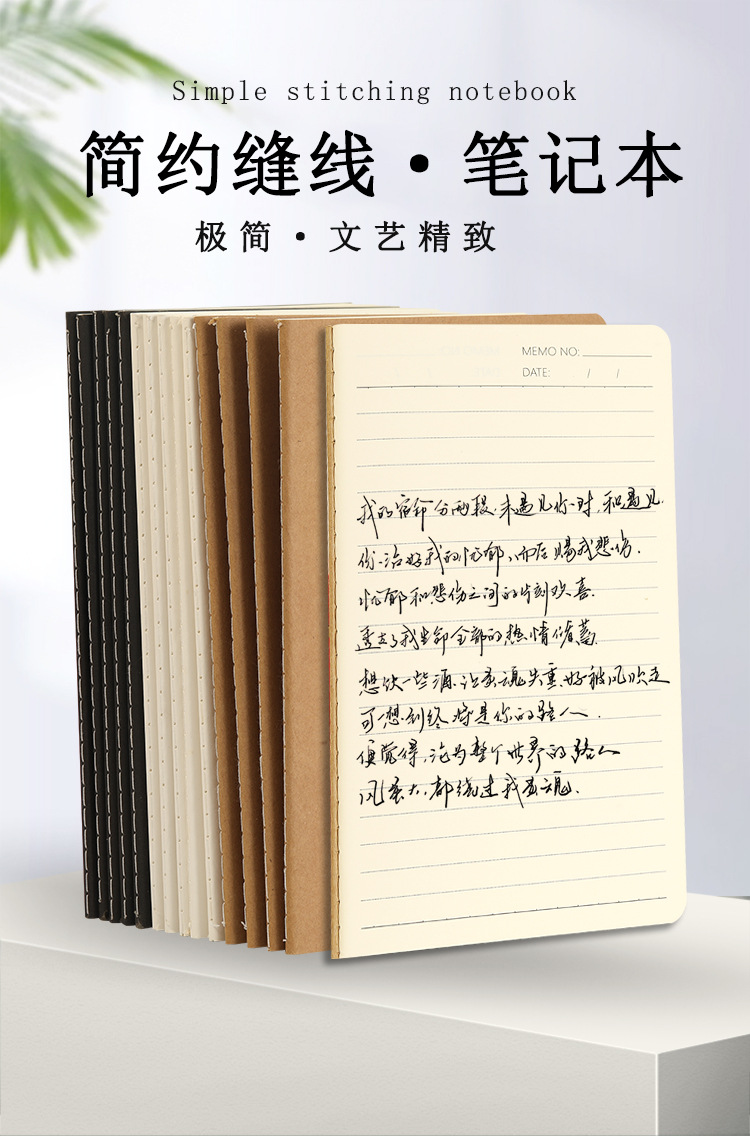 Simple stitching notebook
简约缝线·笔记本
极简·文艺精致
MEMO NO:
DATE: / /
我的宿命分两段,未遇见你时,和遇见
你.治好我的忧郁,而后赐我悲伤.
忧郁和悲伤之间的片刻欢喜.
透支了我生命全部的热情储蓄.
想饮一些酒.让灵魂失重.好被风吹走
可一想到终将是你的路人.
便觉得,沦为整个世界的路人
风虽大,都绕过我灵魂.